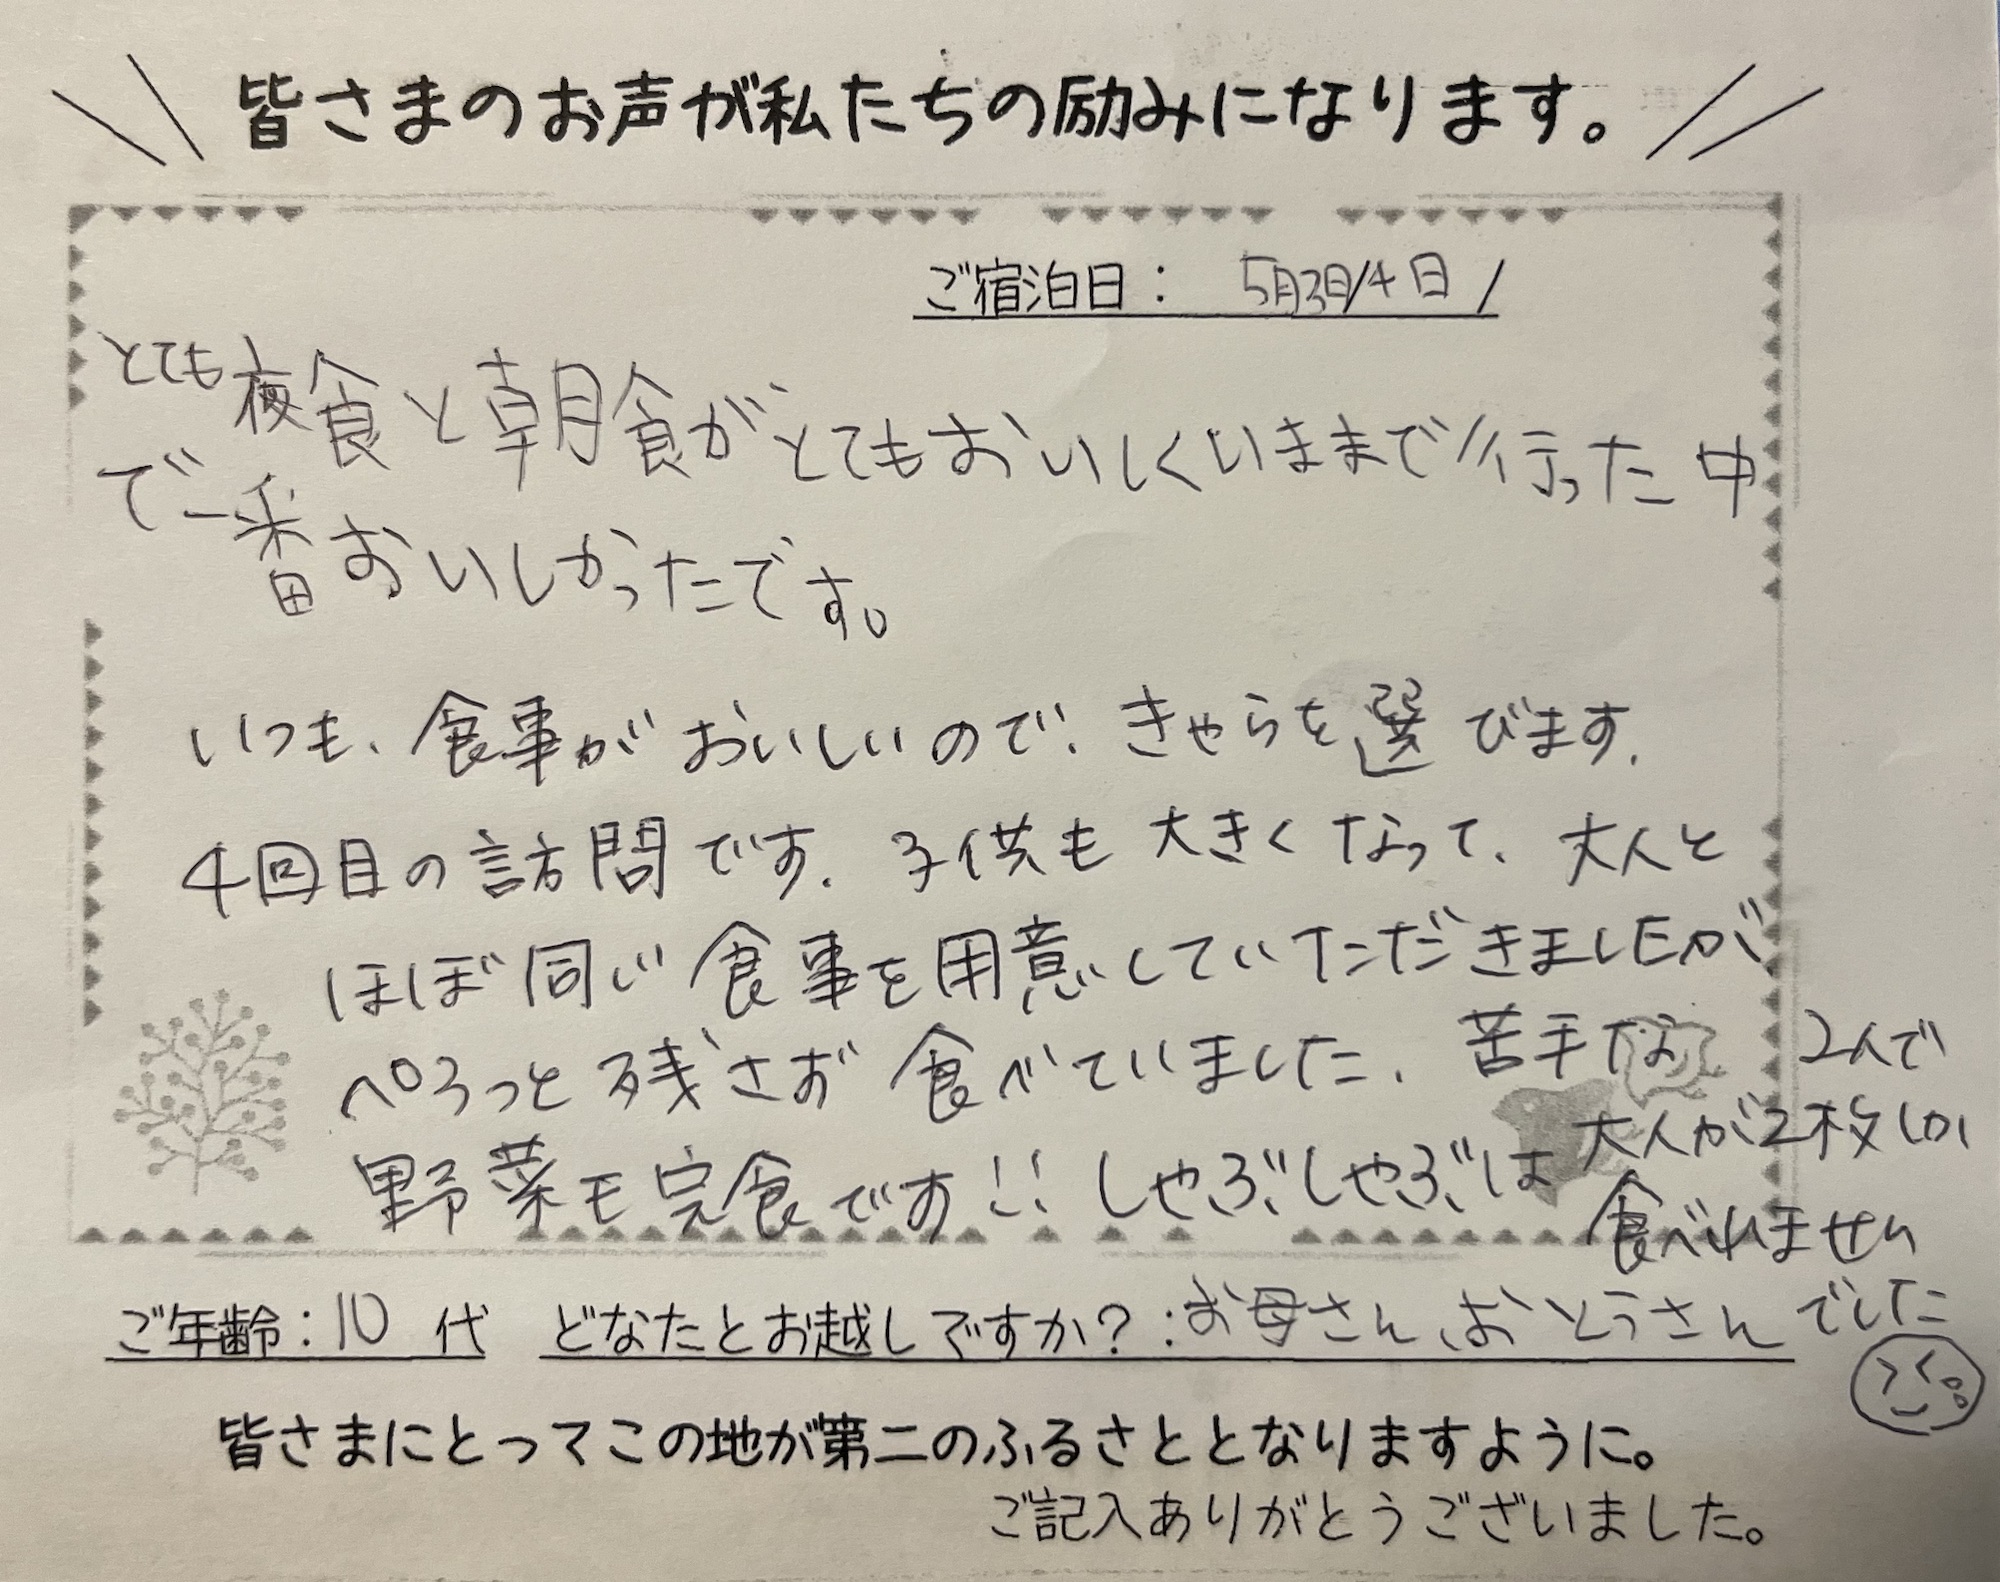 皆さまのお声が私たちの励みになります。
ご宿泊日： 5月3日/4日/
とても夜食と朝食がとてもおいしくいままで行った中
で一番おいしかったです。
いつも、食事がおいしいので、きゃらを選びます。
4回目の訪問です。子供も大きくなって、大人と
ほぼ同じ食事を用意していただきましたが
ぺろっと残さず食べていました。苦手な
野菜も完食です!! しゃぶしゃぶは
2人で
大人が2枚しか
食べれません
でした
ご年齢：10 代 どなたとお越しですか？：お母さん、おとうさん
皆さまにとってこの地が第二のふるさととなりますように。
ご記入ありがとうございました。